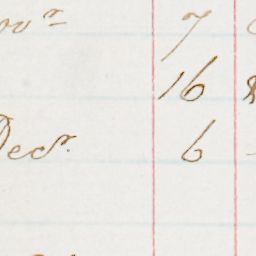 Novr 7
16
Decr. 6